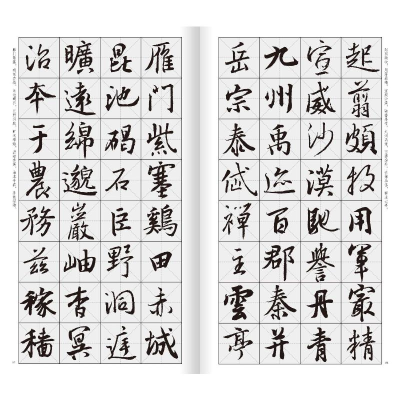 起翦頗牧用軍最精
宣威沙漠馳譽丹青
九州禹迹百郡秦并
岳宗泰岱禪主雲亭
雁門紫塞雞田赤城
昆池碣石臣野洞庭
曠遠綿邈巖岫杳冥
治本于農務茲稼穡